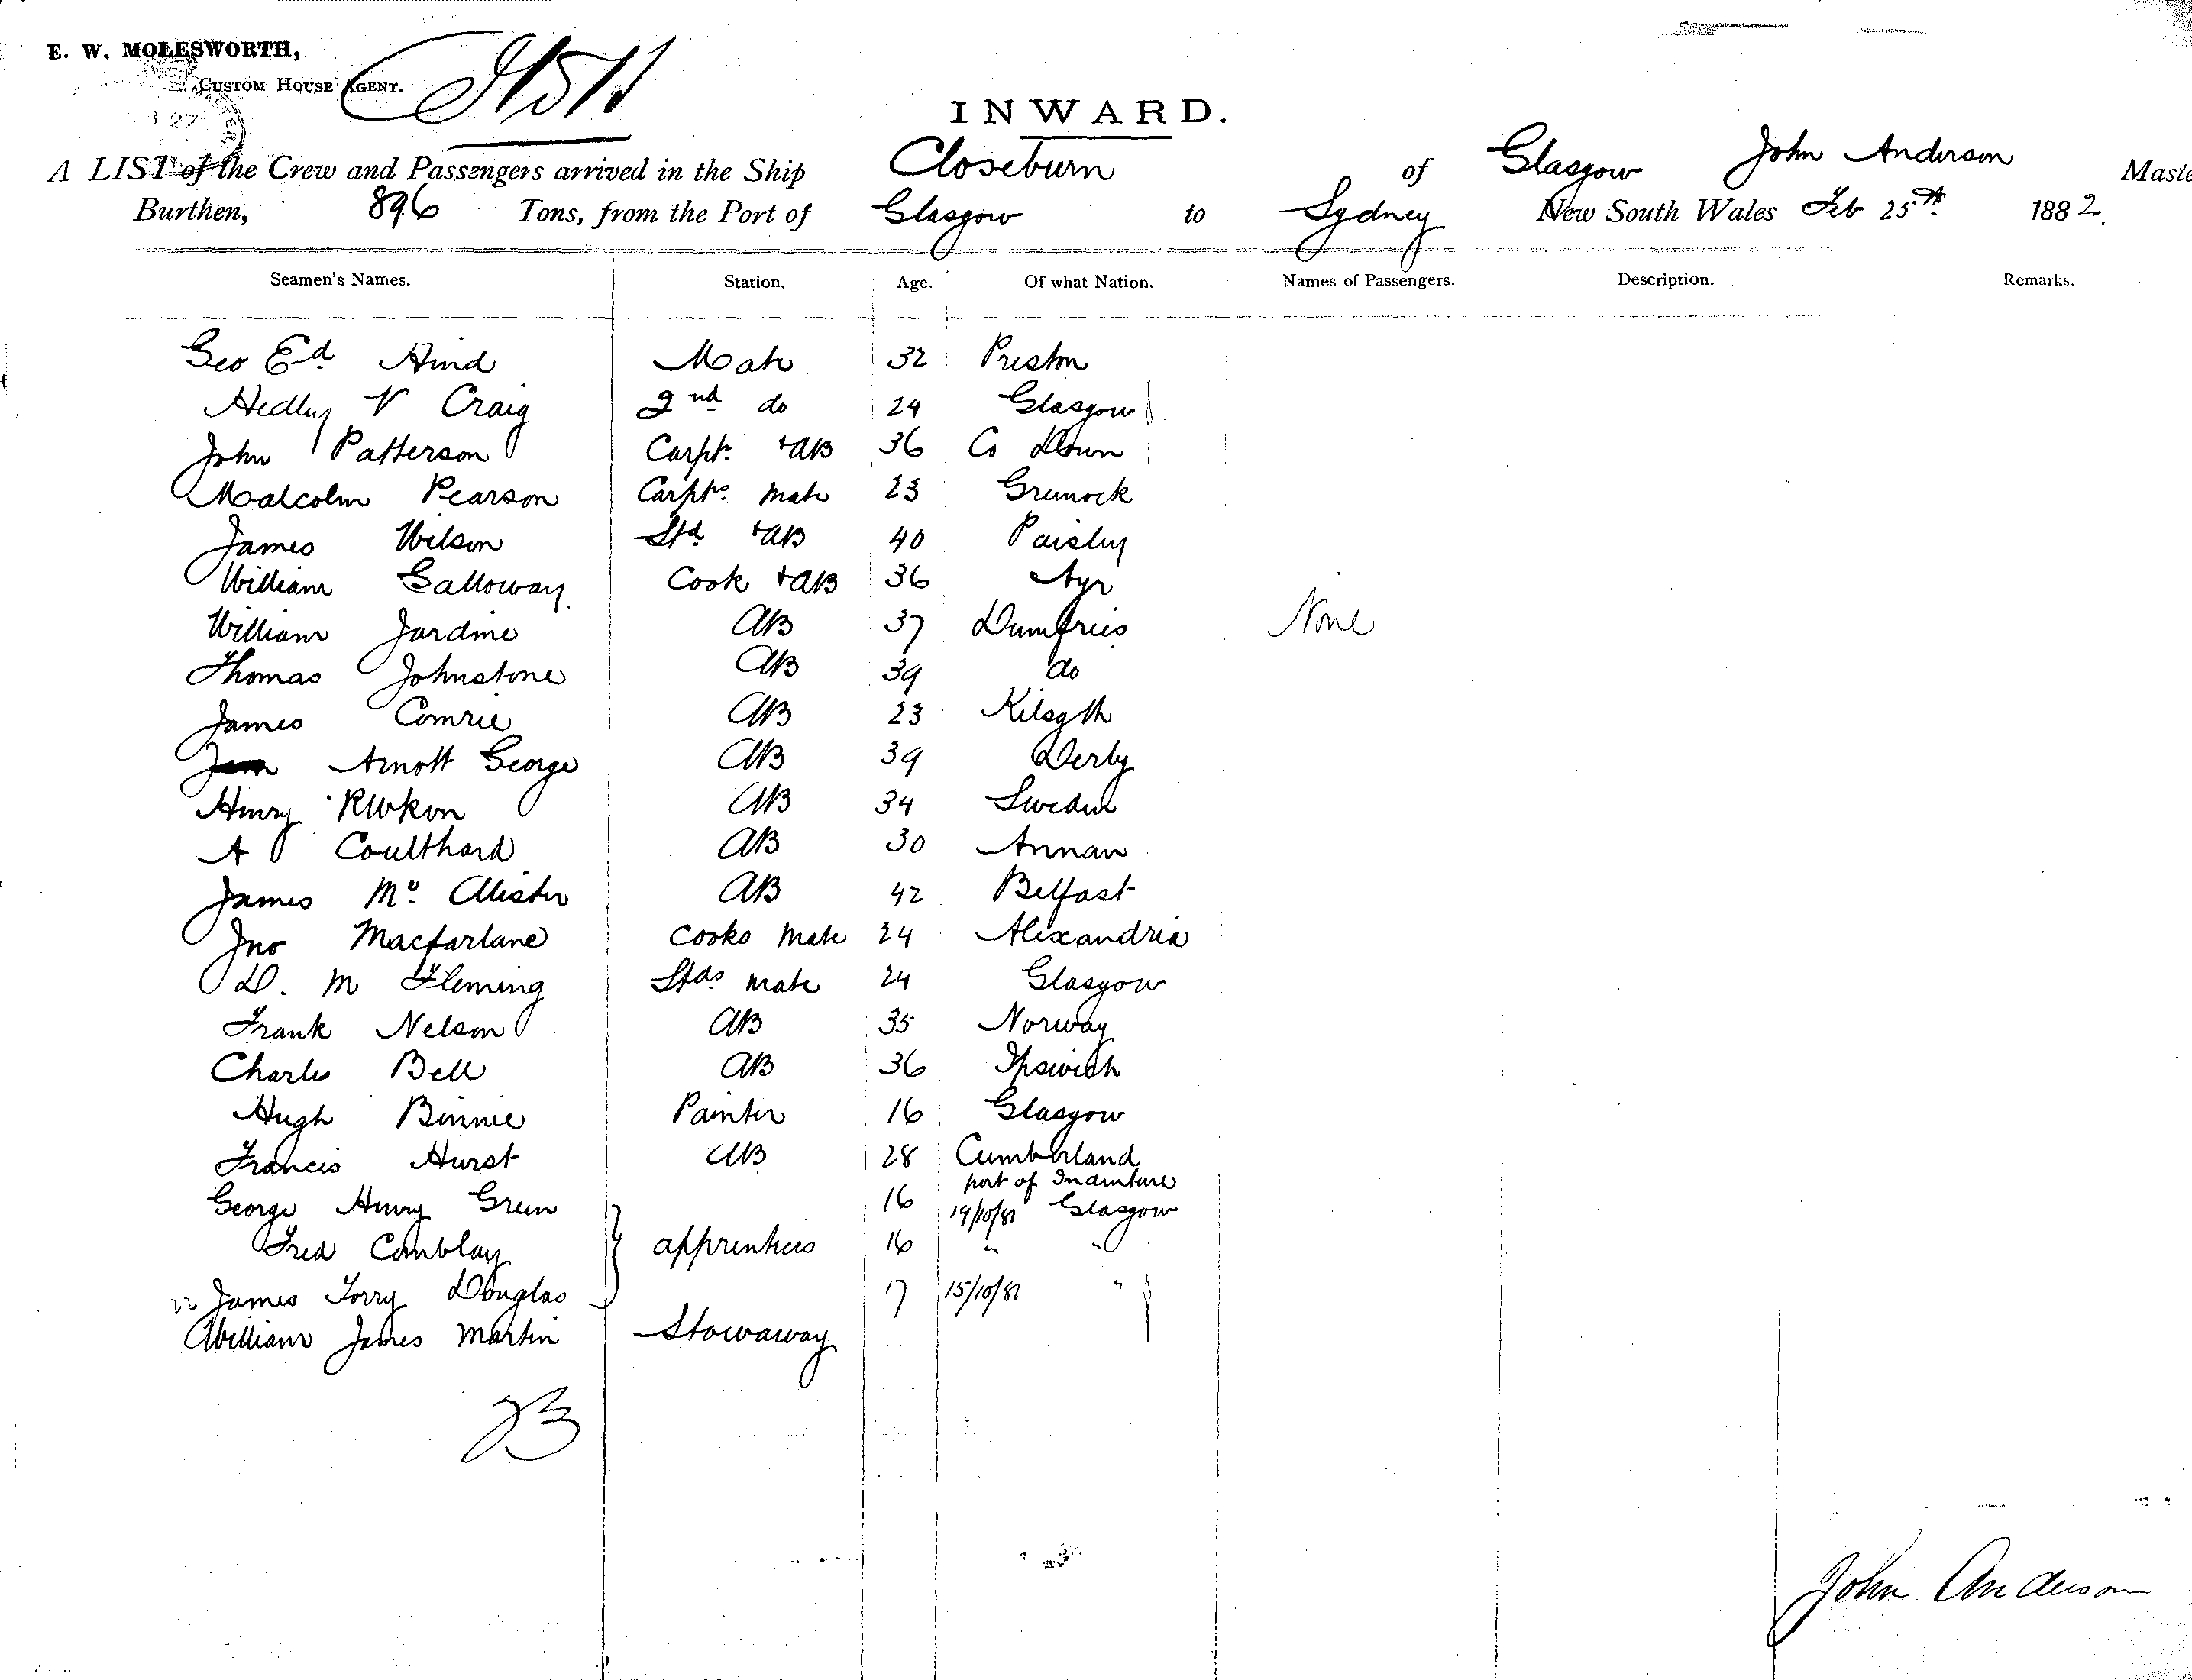 E. W. MOLESWORTH,
CUSTOM HOUSE AGENT.
INWARD.
A LIST of the Crew and Passengers arrived in the Ship Closeburn of Glasgow John Anderson Maste
Burthen, 896 Tons, from the Port of Glasgow to Sydney New South Wales Feb 25th 1882.
Seamen's Names. Station. Age. Of what Nation. Names of Passengers. Description. Remarks.
Geo Ed. Hind Mate 32 Preston
Hedley V Craig 2nd do 24 Glasgow
John Patterson Carptr. + AB 36 Co Down
Malcolm Pearson Carptrs. mate 23 Greenock
James Wilson Std + AB 40 Paisley
William Galloway Cook + AB 36 Ayr
William Jardine AB 37 Dumfries None
Thomas Johnstone AB 39 do
James Comrie AB 23 Kilsyth
Arnott George AB 39 Derby
Henry AB 34 Sweden
A Coulthard AB 30 Annan
James Mc. Alister AB 42 Belfast
Jno Macfarlane Cooks mate 24 Alexandria
D. M Fleming Stds. mate 24 Glasgow
Frank Nelson AB 35 Norway
Charles Bell AB 36 Ipswich
Hugh Binnie Painter 16 Glasgow
Francis Hurst AB 28 Cumberland
port of Indenture
George Henry Green 16 19/10/81 Glasgow
Fred Comblay apprentices 16 " "
James Torry Douglas 17 15/10/81 "
William James Martin Stowaway
23
John Anderson